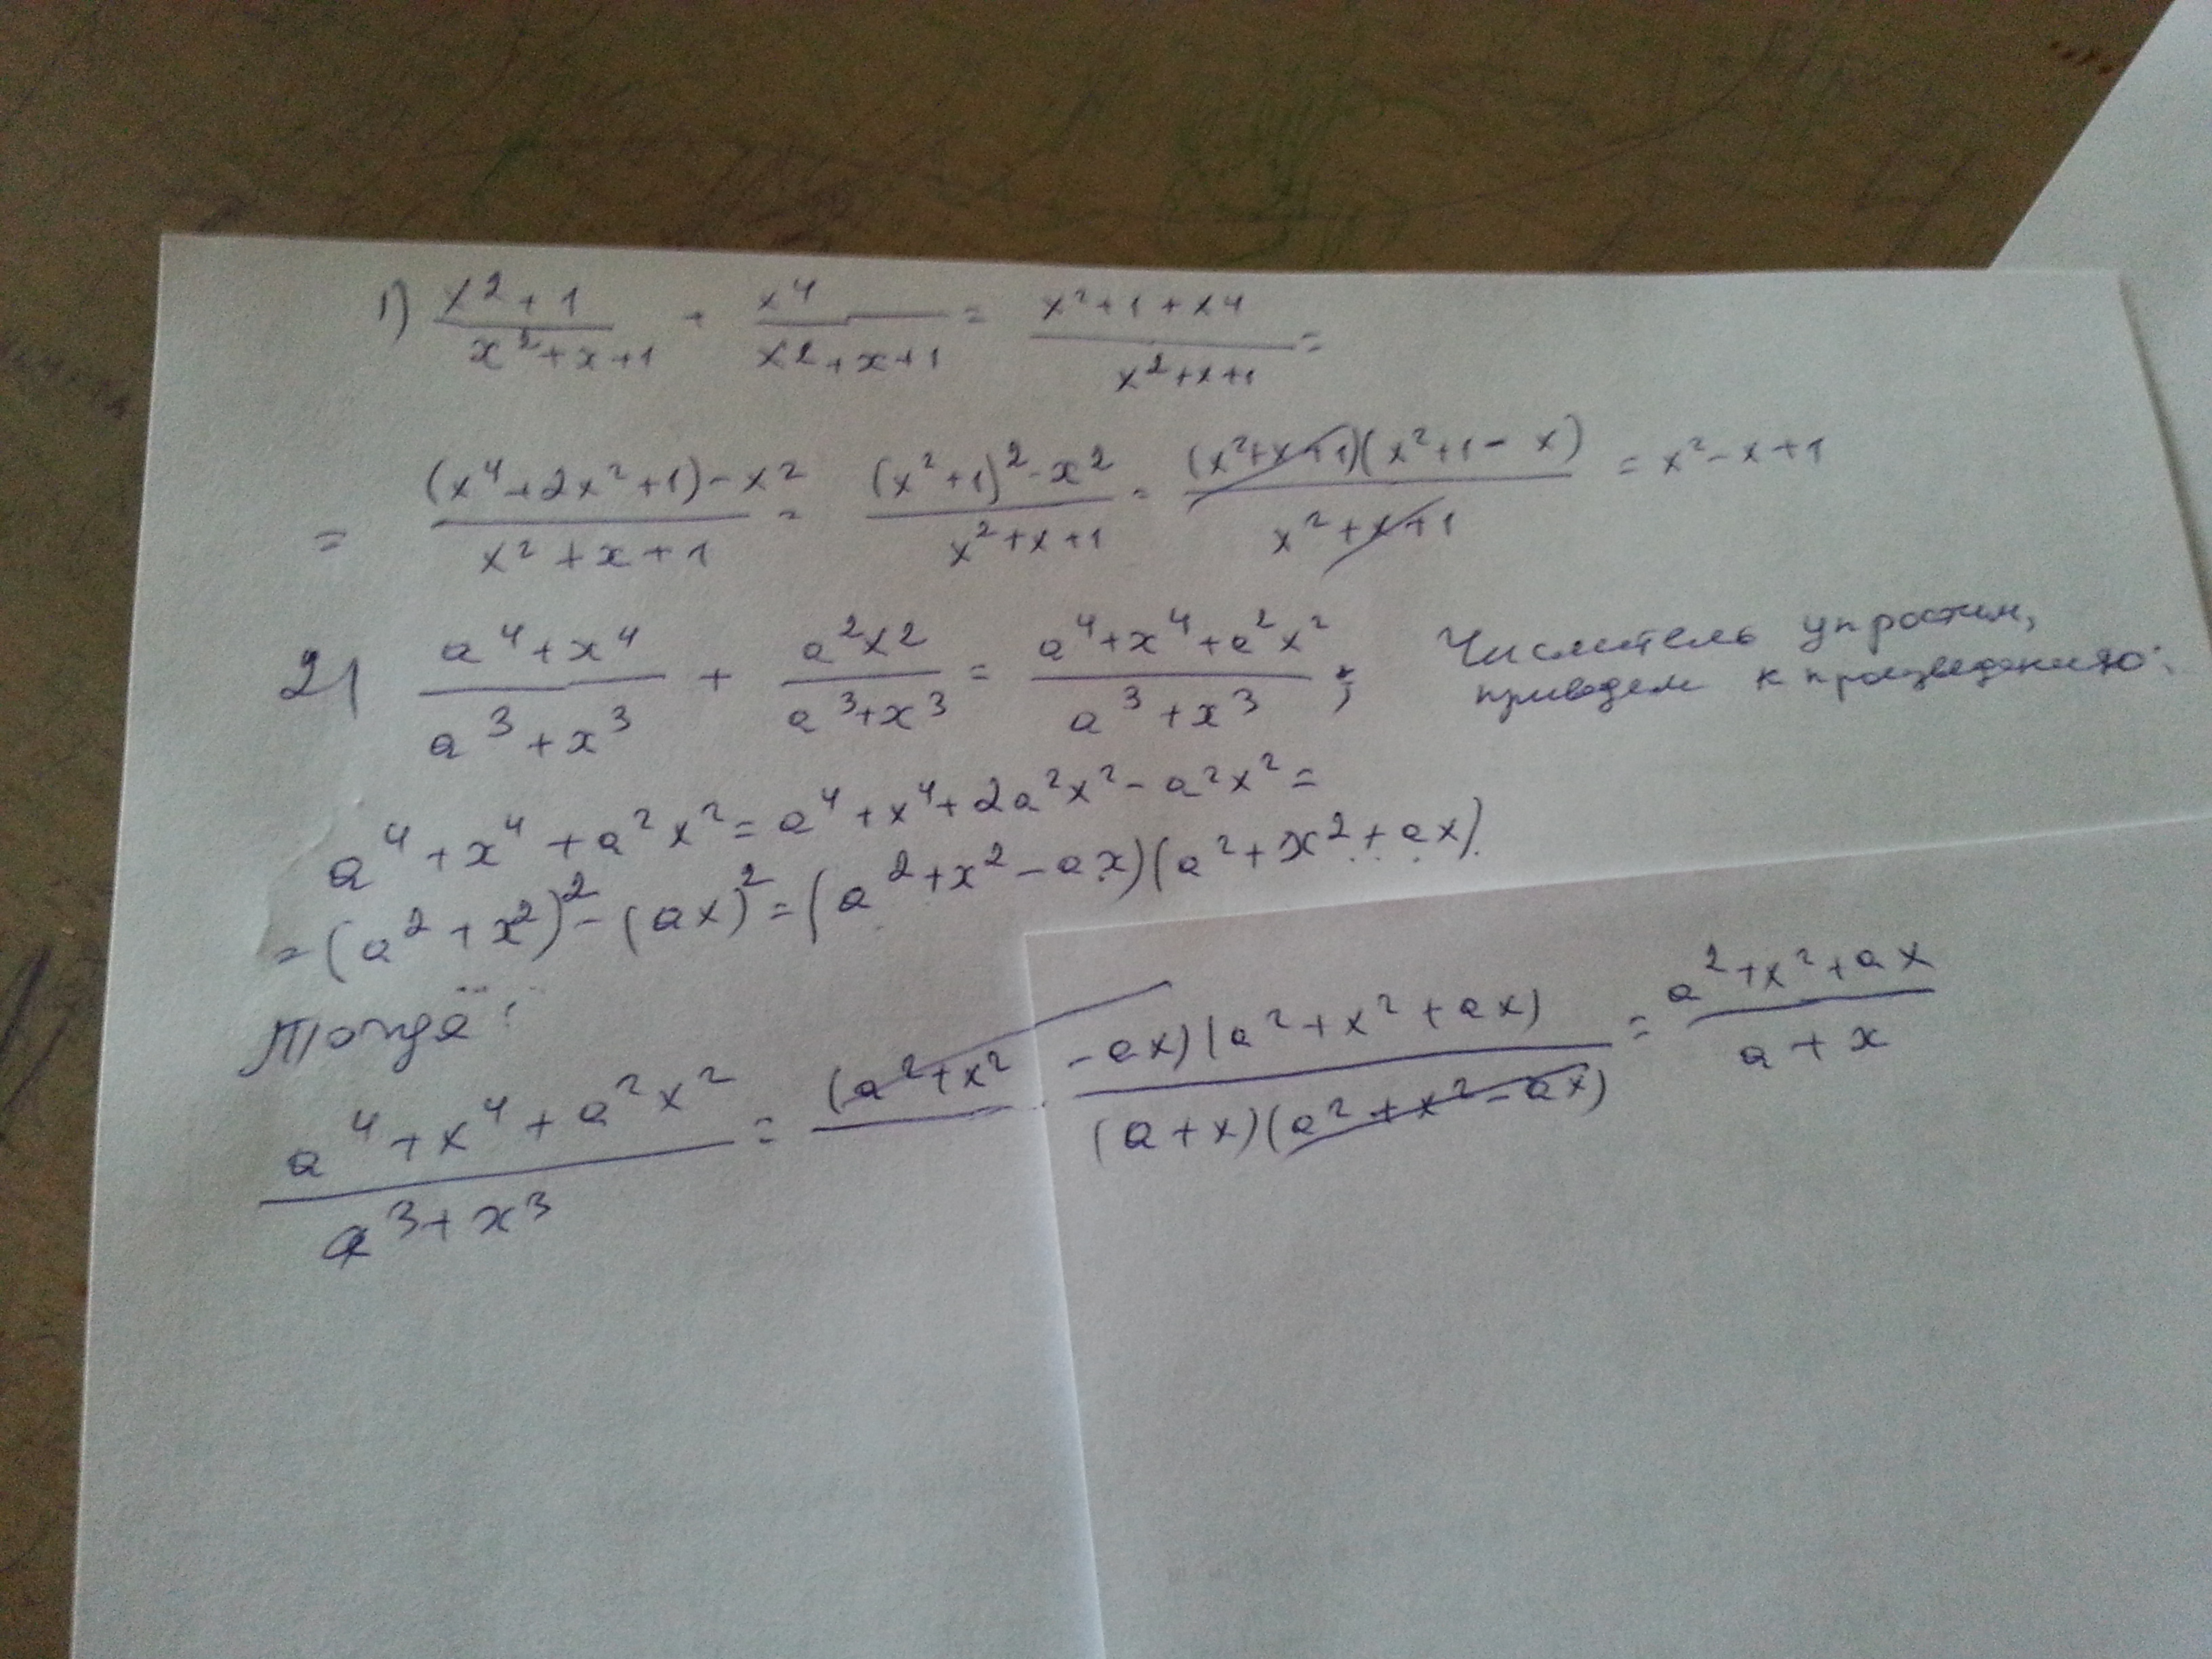 1) (x²+1)/(x²+x+1) + x⁴/(x²+x+1) = (x²+1+x⁴)/(x²+x+1) =
= ((x⁴+2x²+1)-x²)/(x²+x+1) = ((x²+1)²-x²)/(x²+x+1) = ((x²+x+1)(x²+1-x))/(x²+x+1) = x²-x+1
2) (a⁴+x⁴)/(a³+x³) + a²x²/(a³+x³) = (a⁴+x⁴+a²x²)/(a³+x³); Числитель упростим,
приведем к произведению:
a⁴+x⁴+a²x²=a⁴+x⁴+2a²x²-a²x²=
=(a²+x²)²-(ax)²=(a²+x²-ax)(a²+x²+ax).
Тогда:
(a⁴+x⁴+a²x²)/(a³+x³) = ((a²+x²-ax)(a²+x²+ax))/((a+x)(a²+x²-ax)) = (a²+x²+ax)/(a+x)